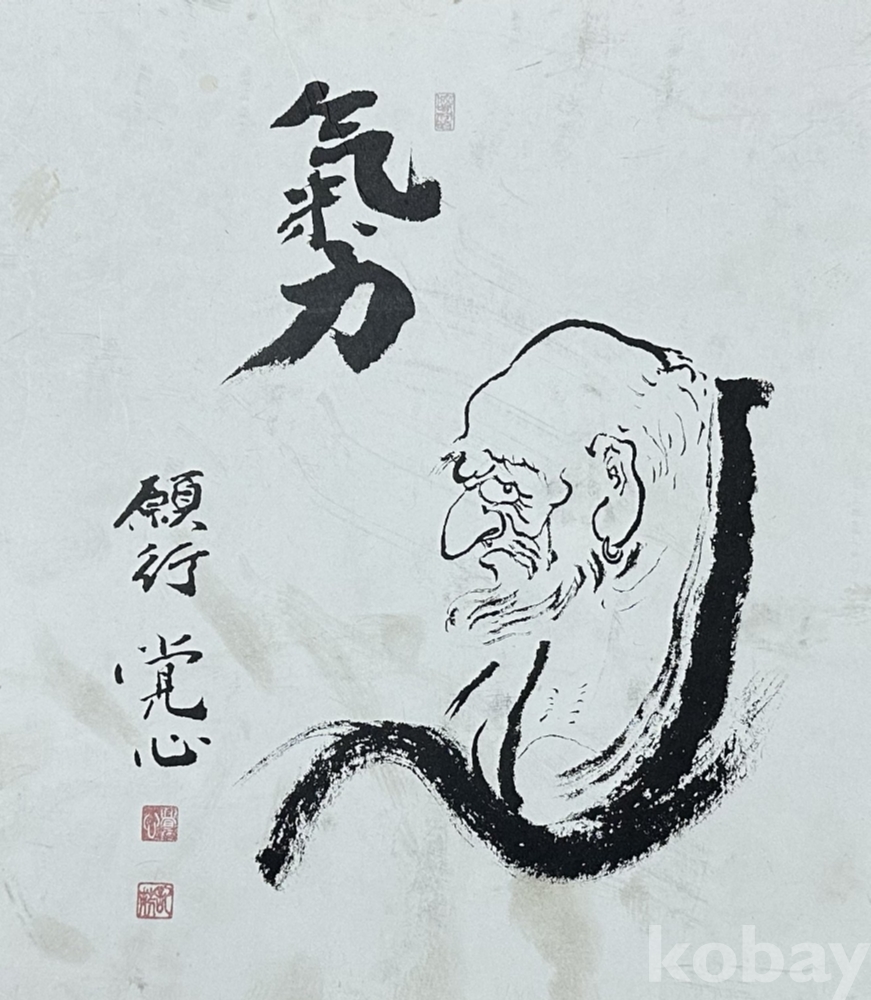 氣力
願行 覚心
kobay